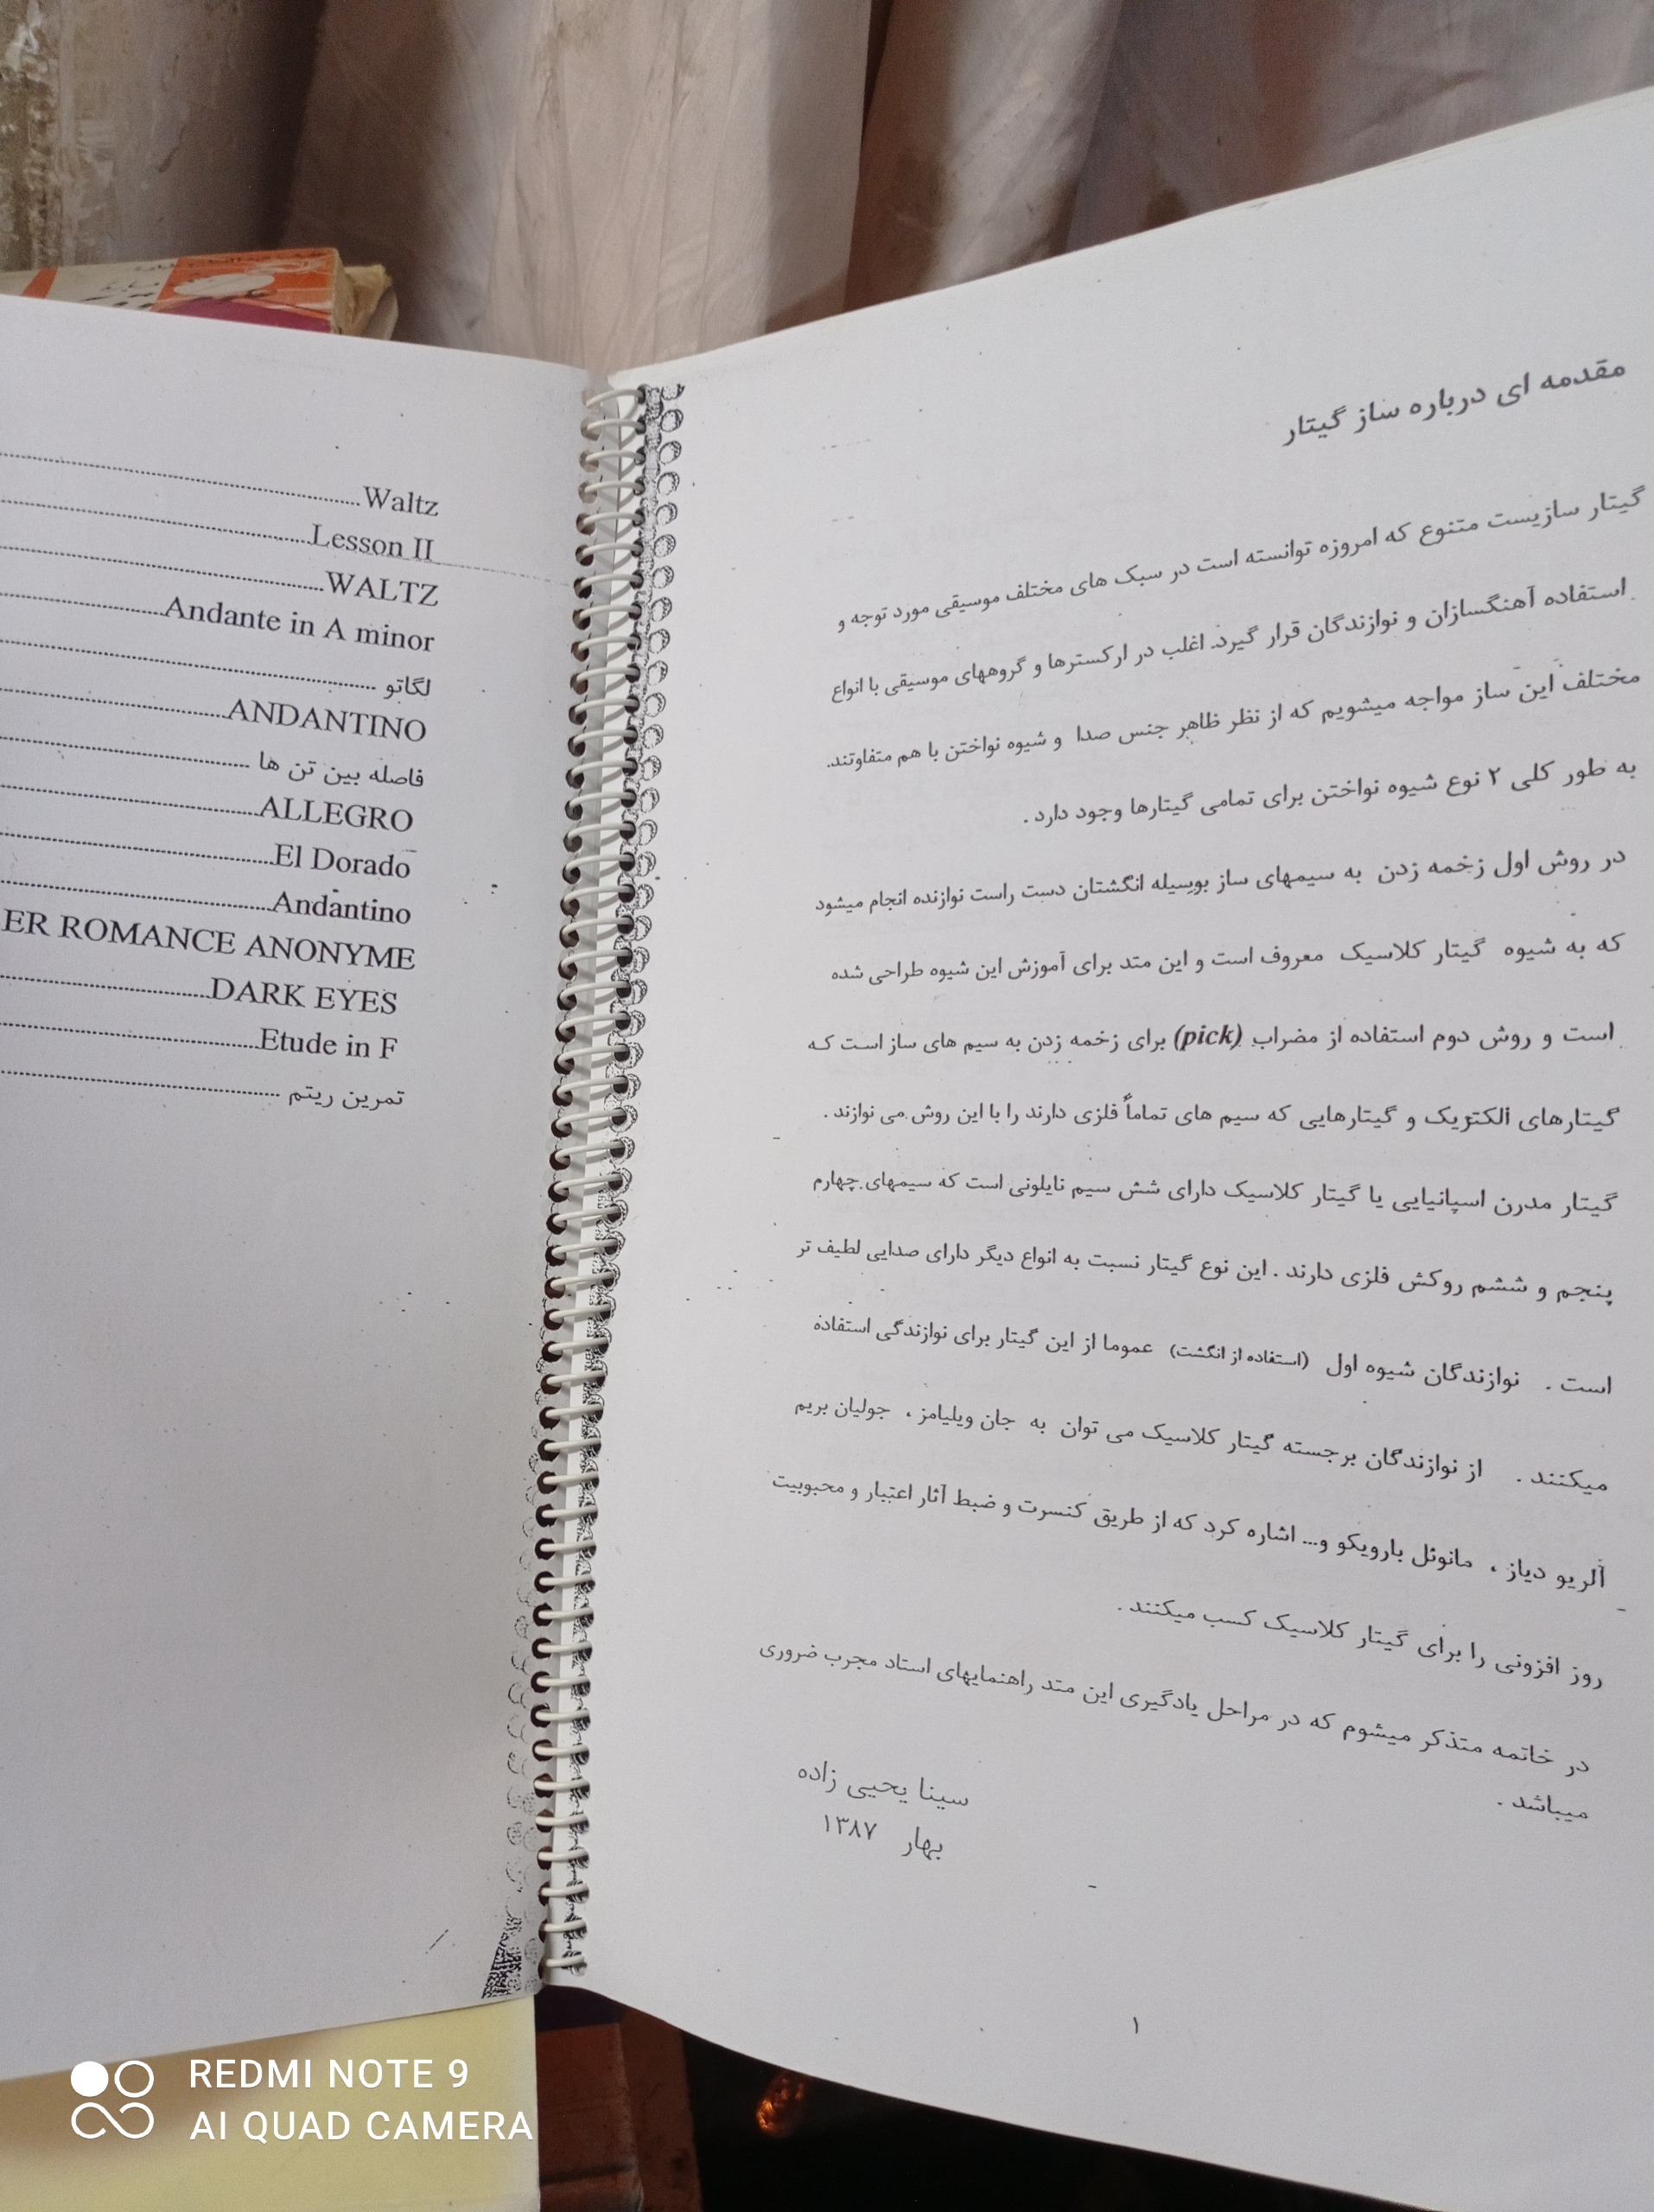 Waltz
Lesson II
WALTZ
Andante in A minor
لگاتو
ANDANTINO
فاصله بین تن ها
ALLEGRO
El Dorado
Andantino
ER ROMANCE ANONYME
DARK EYES
Etude in F
تمرین ریتم
مقدمه ای درباره ساز گیتار
گیتار سازیست متنوع که امروزه توانسته است در سبک های مختلف موسیقی مورد توجه و
استفاده آهنگسازان و نوازندگان قرار گیرد. اغلب در ارکسترها و گروههای موسیقی با انواع
مختلف این ساز مواجه میشویم که از نظر ظاهر جنس صدا و شیوه نواختن با هم متفاوتند.
به طور کلی ۲ نوع شیوه نواختن برای تمامی گیتارها وجود دارد .
در روش اول زخمه زدن به سیمهای ساز بوسیله انگشتان دست راست نوازنده انجام میشود
که به شیوه گیتار کلاسیک معروف است و این متد برای آموزش این شیوه طراحی شده
است و روش دوم استفاده از مضراب (pick) برای زخمه زدن به سیم های ساز است که
گیتارهای الکتریک و گیتارهایی که سیم های تماماً فلزی دارند را با این روش می نوازند .
گیتار مدرن اسپانیایی یا گیتار کلاسیک دارای شش سیم نایلونی است که سیمهای چهارم
پنجم و ششم روکش فلزی دارند . این نوع گیتار نسبت به انواع دیگر دارای صدایی لطیف تر
است . نوازندگان شیوه اول (استفاده از انگشت) عموما از این گیتار برای نوازندگی استفاده
میکنند . از نوازندگان برجسته گیتار کلاسیک می توان به جان ویلیامز ، جولیان بریم
آلریو دیاز ، مانوئل بارویکو و... اشاره کرد که از طریق کنسرت و ضبط آثار اعتبار و محبوبیت
روز افزونی را برای گیتار کلاسیک کسب میکنند .
در خاتمه متذکر میشوم که در مراحل یادگیری این متد راهنمایهای استاد مجرب ضروری
میباشد .
سینا یحیی زاده
بهار ۱۳۸۷
۱
REDMI NOTE 9
AI QUAD CAMERA